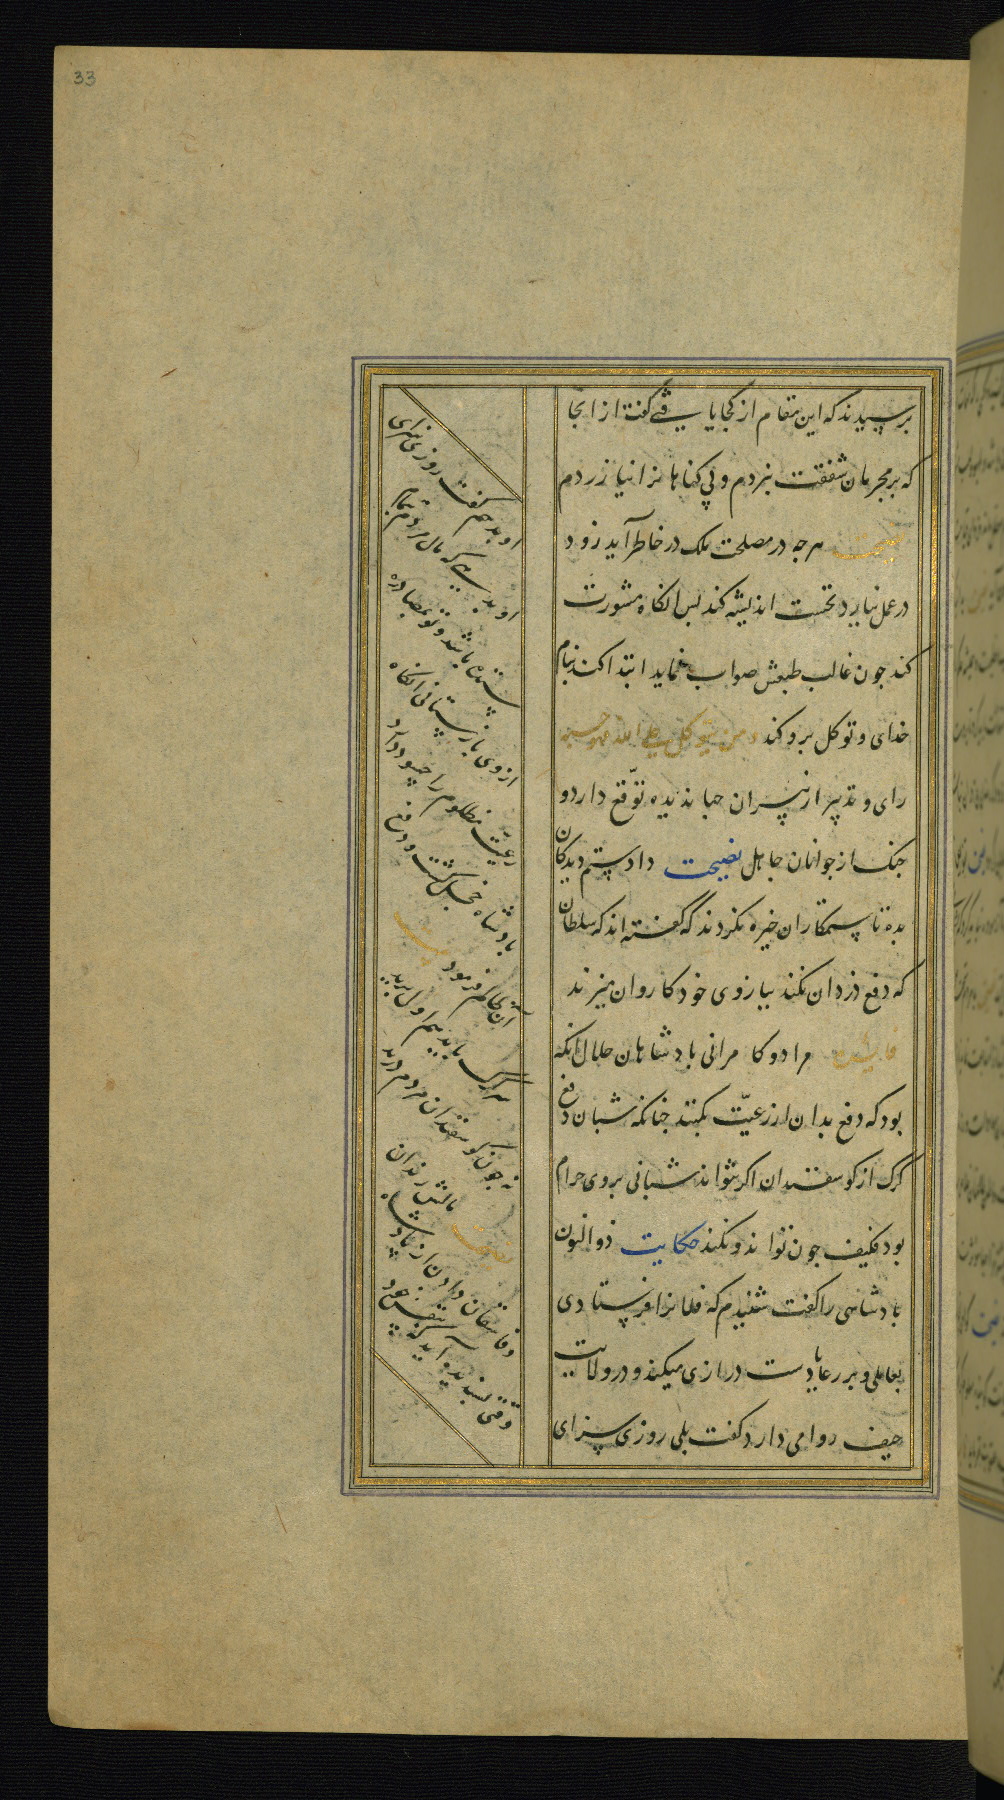 33
بپرسیدند که این مقام از کجا یافتی گفت از انجا
که بر مجرمان شفقت نبردم و بی کناهانرا نیازردم
نصیحت هرچه در مصلحت ملک در خاطر آید زود
در عمل نیارد نخست اندیشه کند پس انکاه مشورت
کند جون غالب ظنش صواب نماید ابتدا کند بنام
خدای و توکل برو کند و من یتوکل علی الله فهو حسبه
رای و تدبیر از پیران جهاندیده توقع دارد و
جنک از جوانان جاهل نصیحت داد ستم دیدکان
بده تا ستمکاران خیره نکردند که گفته اند که سلطان
که دفع دزدان نکند ببازوی خود کاروان میزند
مراد و کامرانی بادشاهان حلال انکه
بود که دفع بدان از رعیّت بکنند جنانکه شبان دفع
کرک از کوسفندان اکر نتواند شبانی بروی حرام
بود فکیف جون تواند و نکند حکایت ذوالنون
بادشاهی را کفت شنیدم که فلانرا فرستادی
بعاملی و بر رعایا دست درازی میکند و در ولایت
حیف روا می دارد کفت بلی روزی سزای
او بدهم کفت روزی سزای
او بدهی که مال مردم تمام
ستده باشد و تو بمصادره
از وی بازستانی انکاه
رعیّت مظلوم را چه سود دارد
بادشاه خجل کشت و دفع
آن ظالم فرمود بیت
سر کرک باید هم اول برید
نه جون کوسفندان مردم درید
نصیحت مالش رندان
و فاسقان دادن از پادشاه
وقتی پسندیده آید که بنفس خود